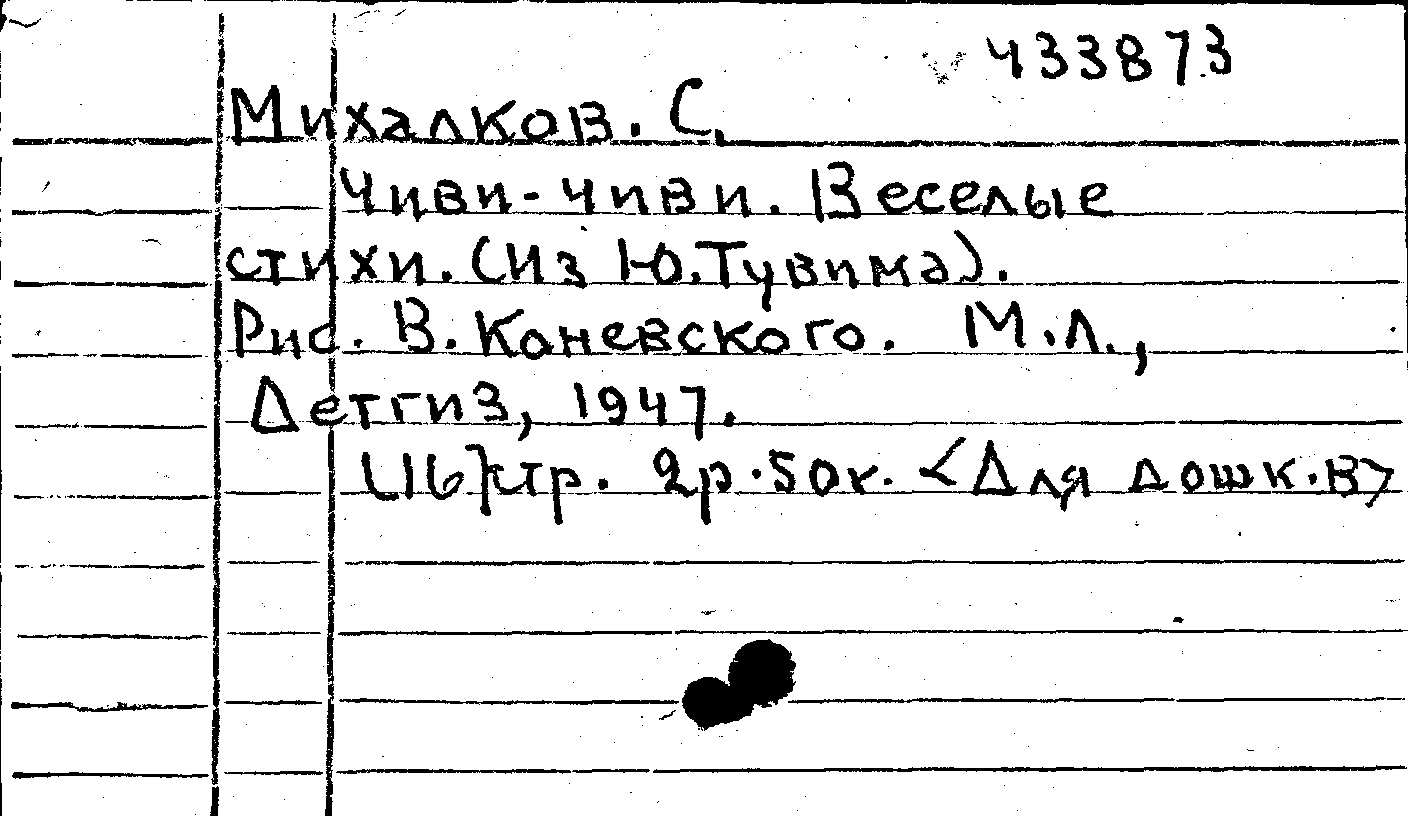 433873
Михалков. С.
Чиви-чиви. Веселые
стихи. (Из Ю.Тувима).
Рис. В. Каневского. М.Л.,
Детгиз, 1947.
[16] стр. 2р.50к. <Для дошк.в>